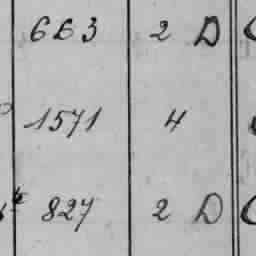 663 2 D
1571 4
827 2 D